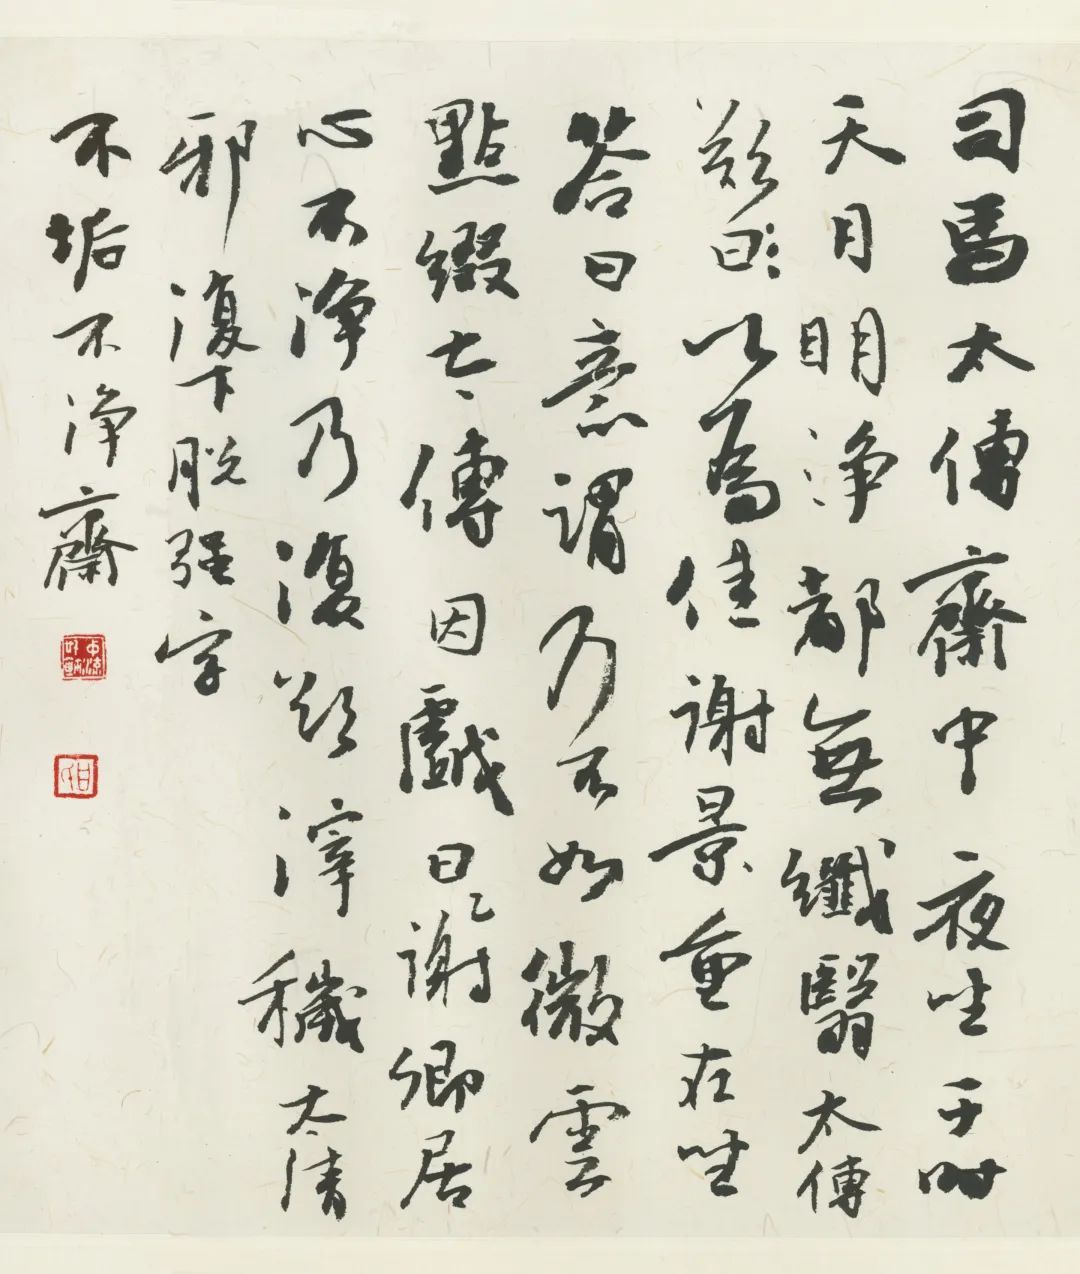 司馬太傅齋中夜坐于時
天月明淨都無纖翳太傅
歎曰以為佳謝景重在坐
答曰意謂乃不如微雲
點綴太傅因戲曰謝卿居
心不淨乃復欲滓穢太清
邪 復下脫強字
不垢不淨齋